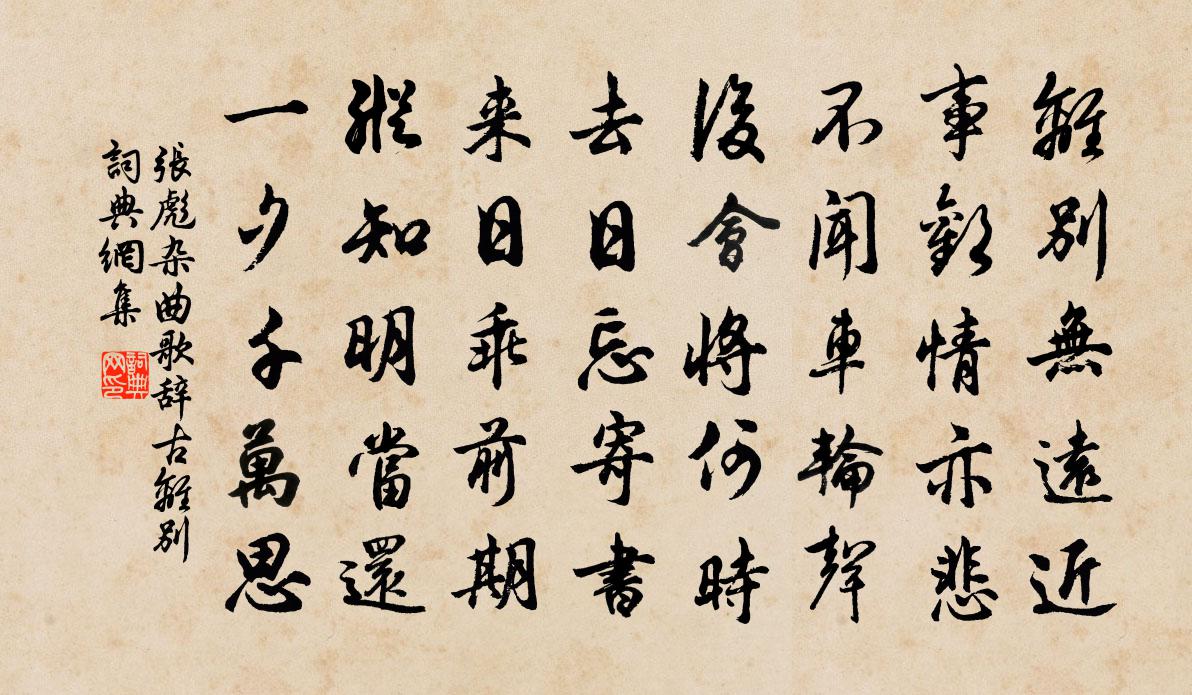 離別無遠近
事歡情亦悲
不聞車輪聲
後會將何時
去日忘寄書
来日乖前期
縱知明當還
一夕千萬思
張彪杂曲歌辞古離別
詞典網集
詞典网印